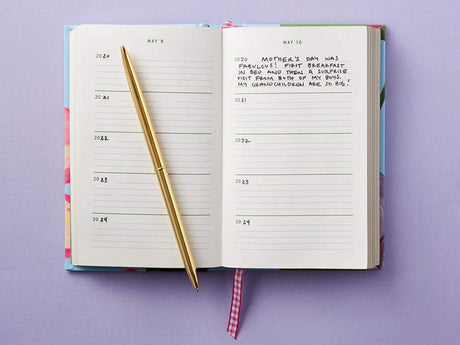 MAY 9
2020
2021
2022
2023
2024
MAY 10
2020 MOTHER'S DAY WAS
FABULOUS! FIRST BREAKFAST
IN BED AND THEN A SURPRISE
VISIT FROM BOTH OF MY BOYS.
MY GRANDCHILDREN ARE SO BIG!
2021
2022
2023
2024